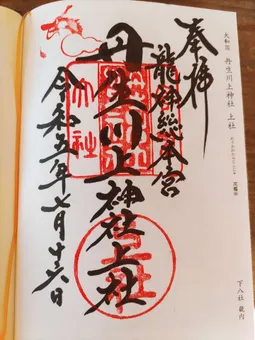 奉拝
龍神総本宮
丹生川上神社上社
令和五年七月十六日
大和国 丹生川上神社 上社
下八社 蔵内